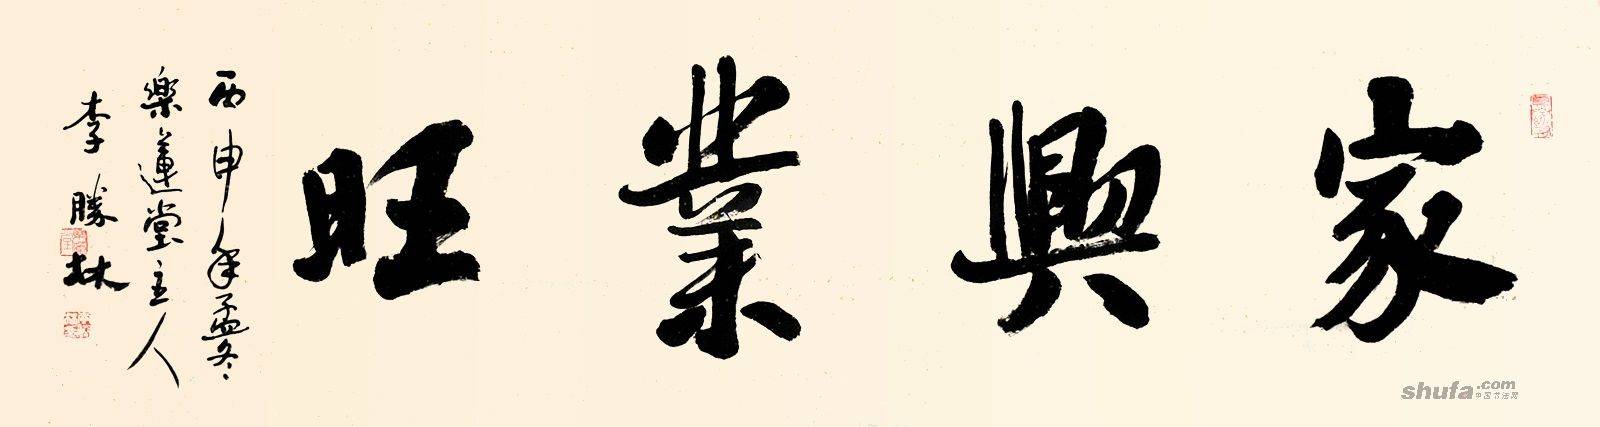 家興業旺
丙申年孟冬
樂蓮堂主人
李勝林
shufa.com
中国书法网